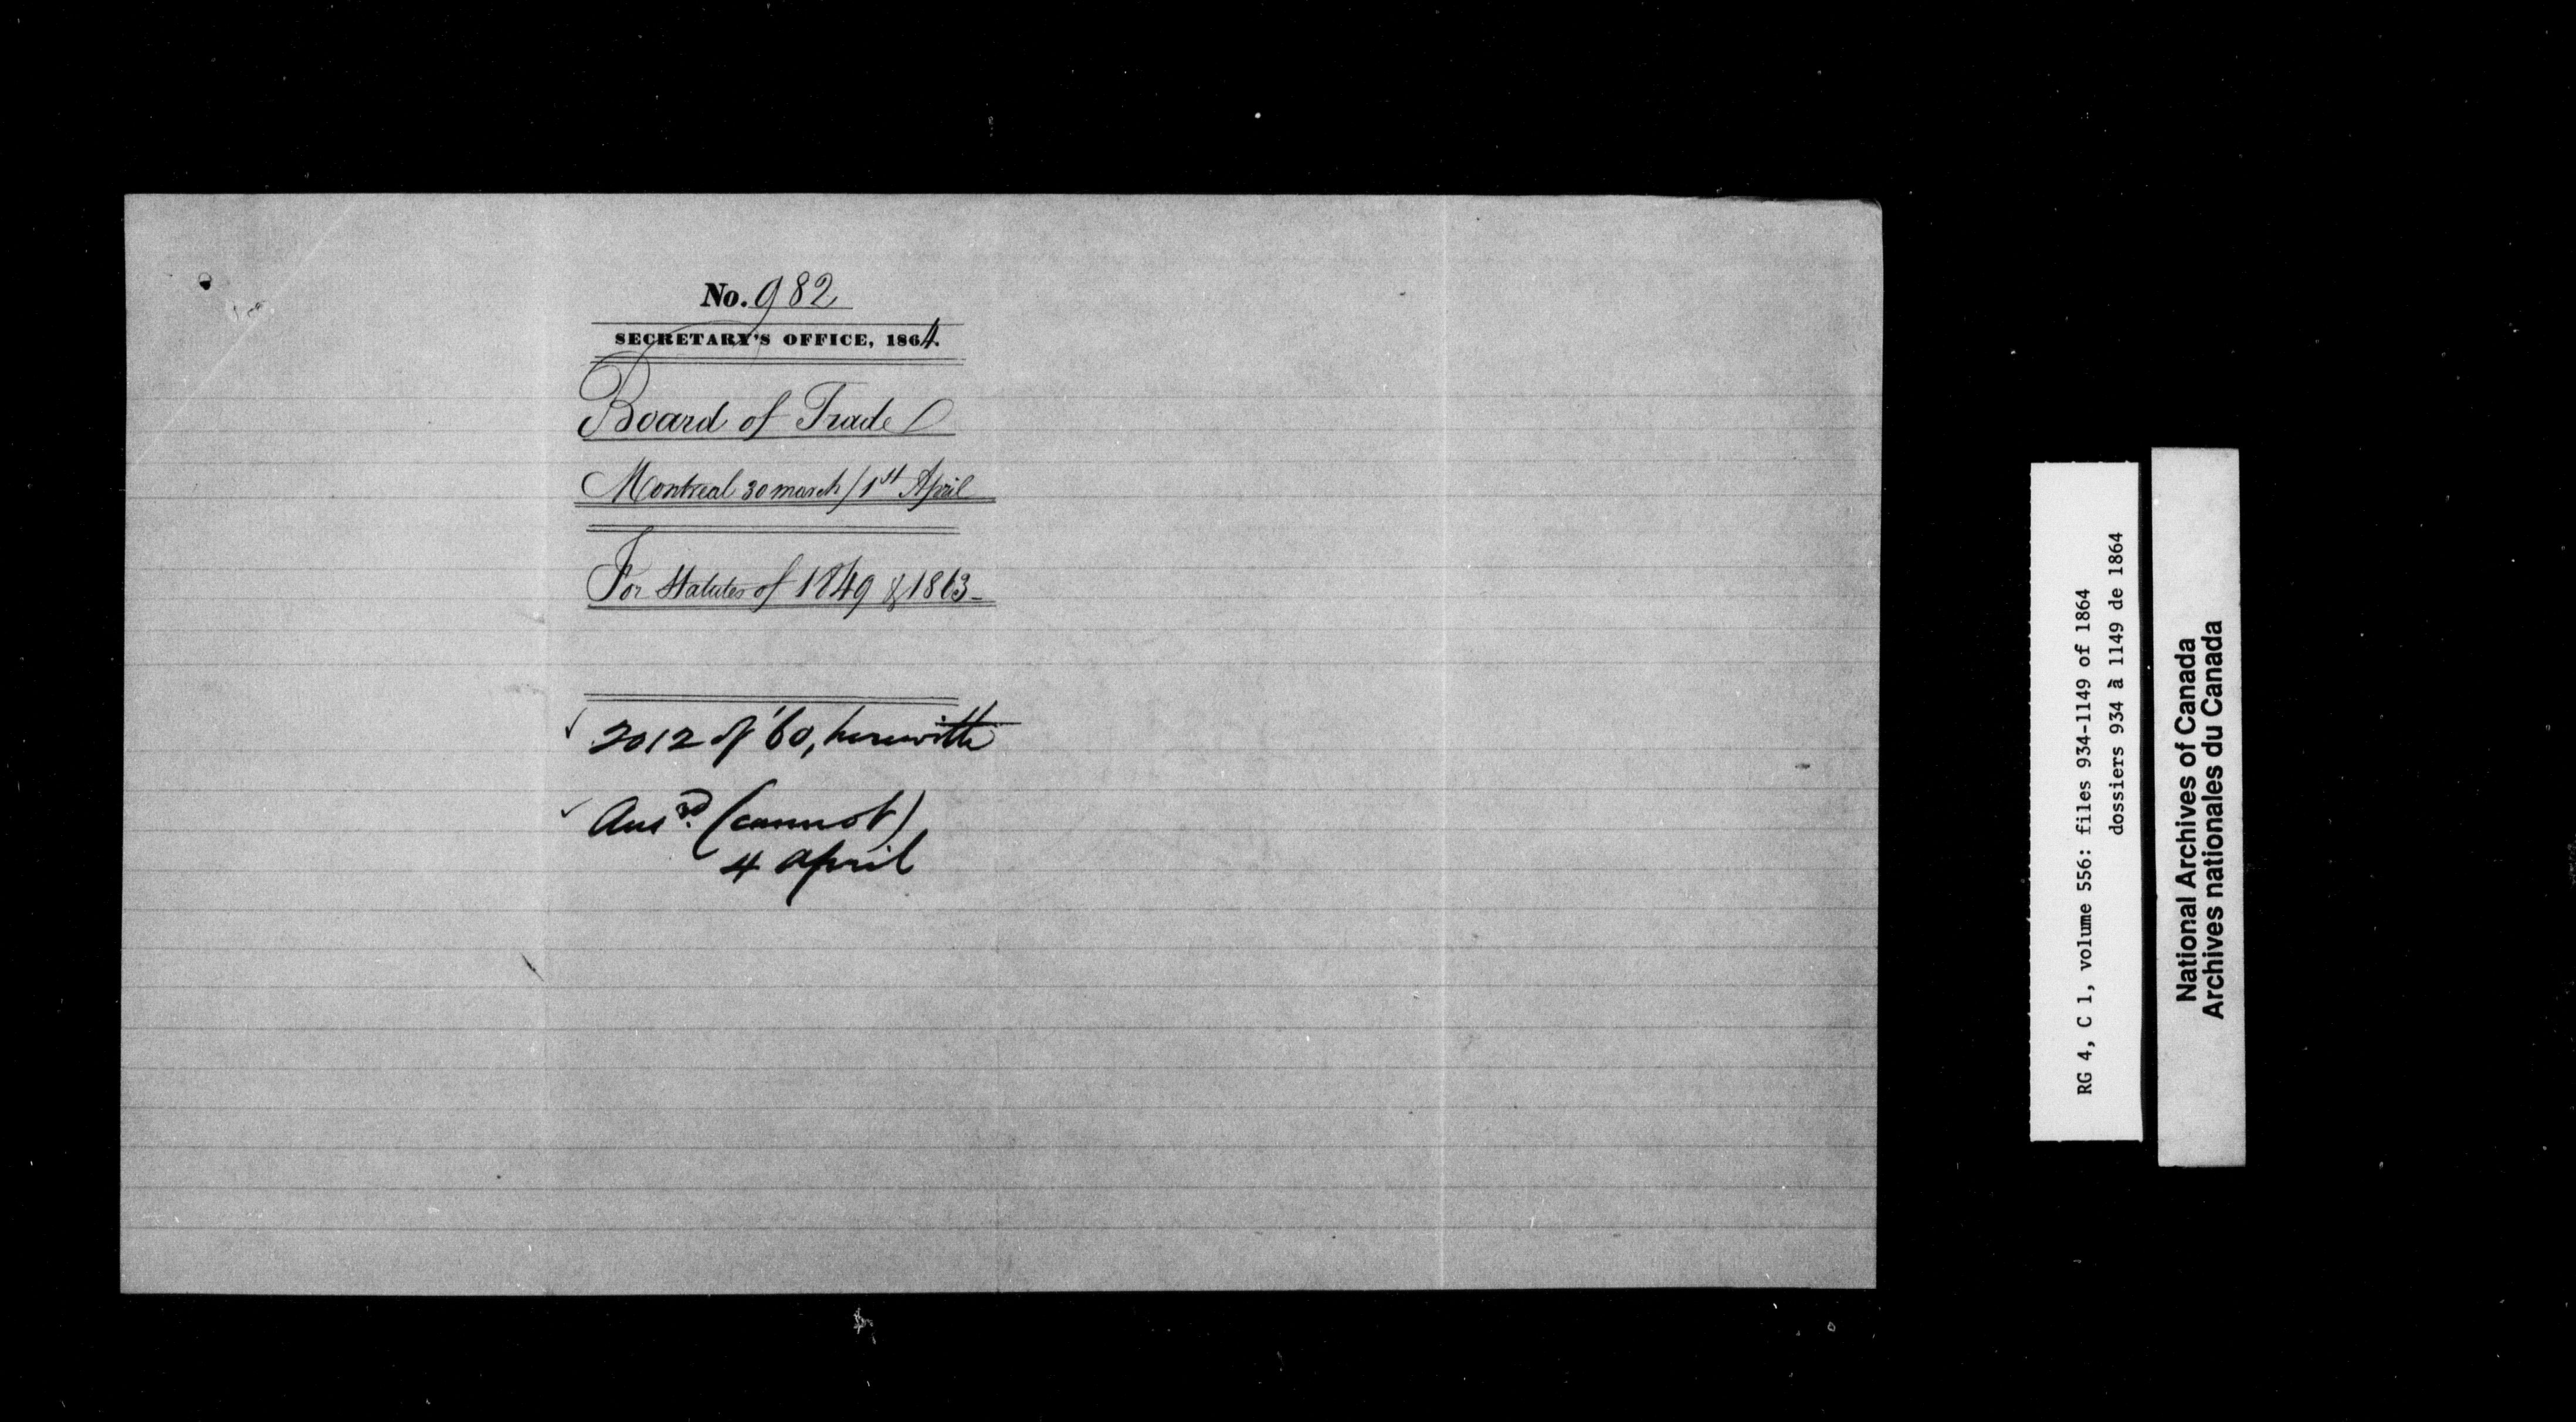 No. 982
SECRETARY'S OFFICE, 1864.
Board of Trade
Montreal 30 march / 1st April
For Statutes of 1849 & 1863-
✓ 2012 of '60, herewith
✓ Ansd. (cannot)
4 April
RG 4, C 1, volume 556: files 934-1149 of 1864
dossiers 934 à 1149 de 1864
National Archives of Canada
Archives nationales du Canada